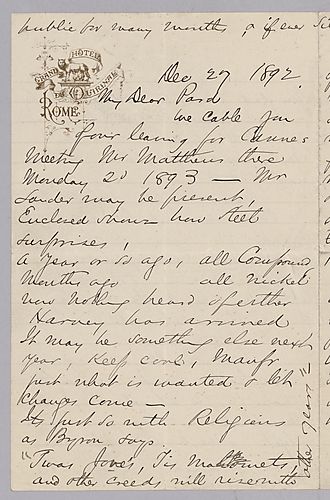 public for many months, & if ever
GRAND HÔTEL
DU QUIRINAL
ROME
Dec 27 1892
My Dear Pard
We cable you
four leaving for Cannes
Meeting Mr Matthews there
Monday 2d 1893 — Mr
may be present,
Enclosed shows how Steel
surprises!
A year or so ago, all Compound
Months ago all nickel
now nothing heard of either
Harvey has arrived
It may be something else next
year, Keep cool, Manfr
just what is wanted & let
changes come —
Its just so with Religions
as Byron says
"Twas Jove's, Tis Mahomet's,
and other creeds will rise with
other years"